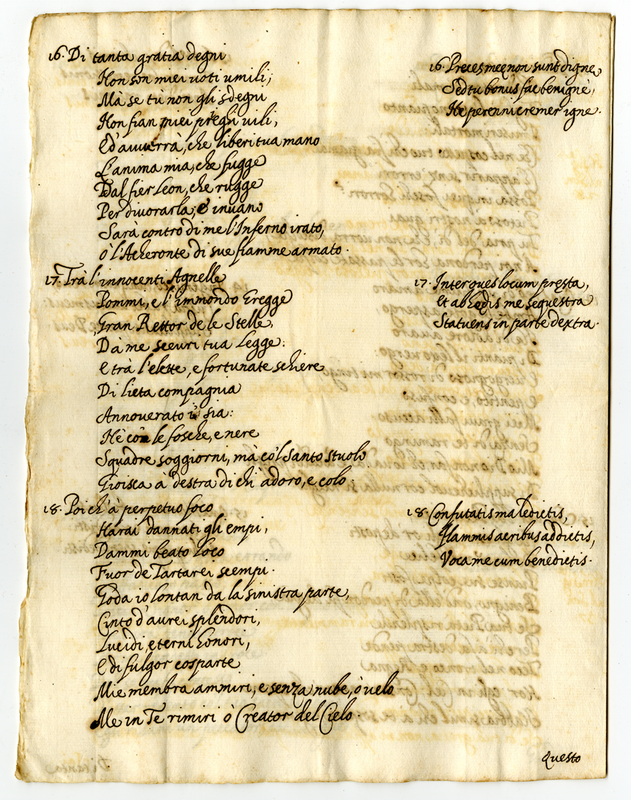 16. Di tanta gratia degni
Non son miei voti umili;
Mà se tù non gli sdegni
Non fian miei preghi vili,
Ed'avuerrà, che liberi tua mano
L'anima mia, che fugge
Dal fier Leon, che rugge
Per divorarla, è invano
Sarà contro di me l'Inferno irato,
ò l'Acheronte di sue fiamme armato.
17. Trà l'innocenti Agnelle
Pommi, e l'immondo Gregge
Gran Rettor de le Stelle,
Dà me scevri tua Legge:
E trà l'elette, e fortunate schiere
Di lieta compagnia
Annoverato i' sia:
Nè con le fosche, e nere
Squadre soggiorni, mà co'l Santo stuolo
Gioisca à destra di ch'i adoro, e colo.
18. Poich'à perpetuo foco
Harai dannati gli empi,
Dammi beato loco
Fuor de Tartarei scempi.
Goda io lontan da la sinistra parte,
Cinto d'aurei splendori,
Lucidi eterni honori,
E di fulgor cosparte
Mie membra ammiri, e senza nube, ò velo
Me in Te rimiri ò Creator del Cielo.
16. Preces meę non sunt dignę,
Sed tu bonus fac benigne,
Ne perenni cremer igne.
17. Inter oues locum pręsta,
Et ab hędis me sequestra
Statuens in parte dextra.
18. Confutatis maledictis,
Flammis acribus addictis,
Voca me cum benedictis.
Questo